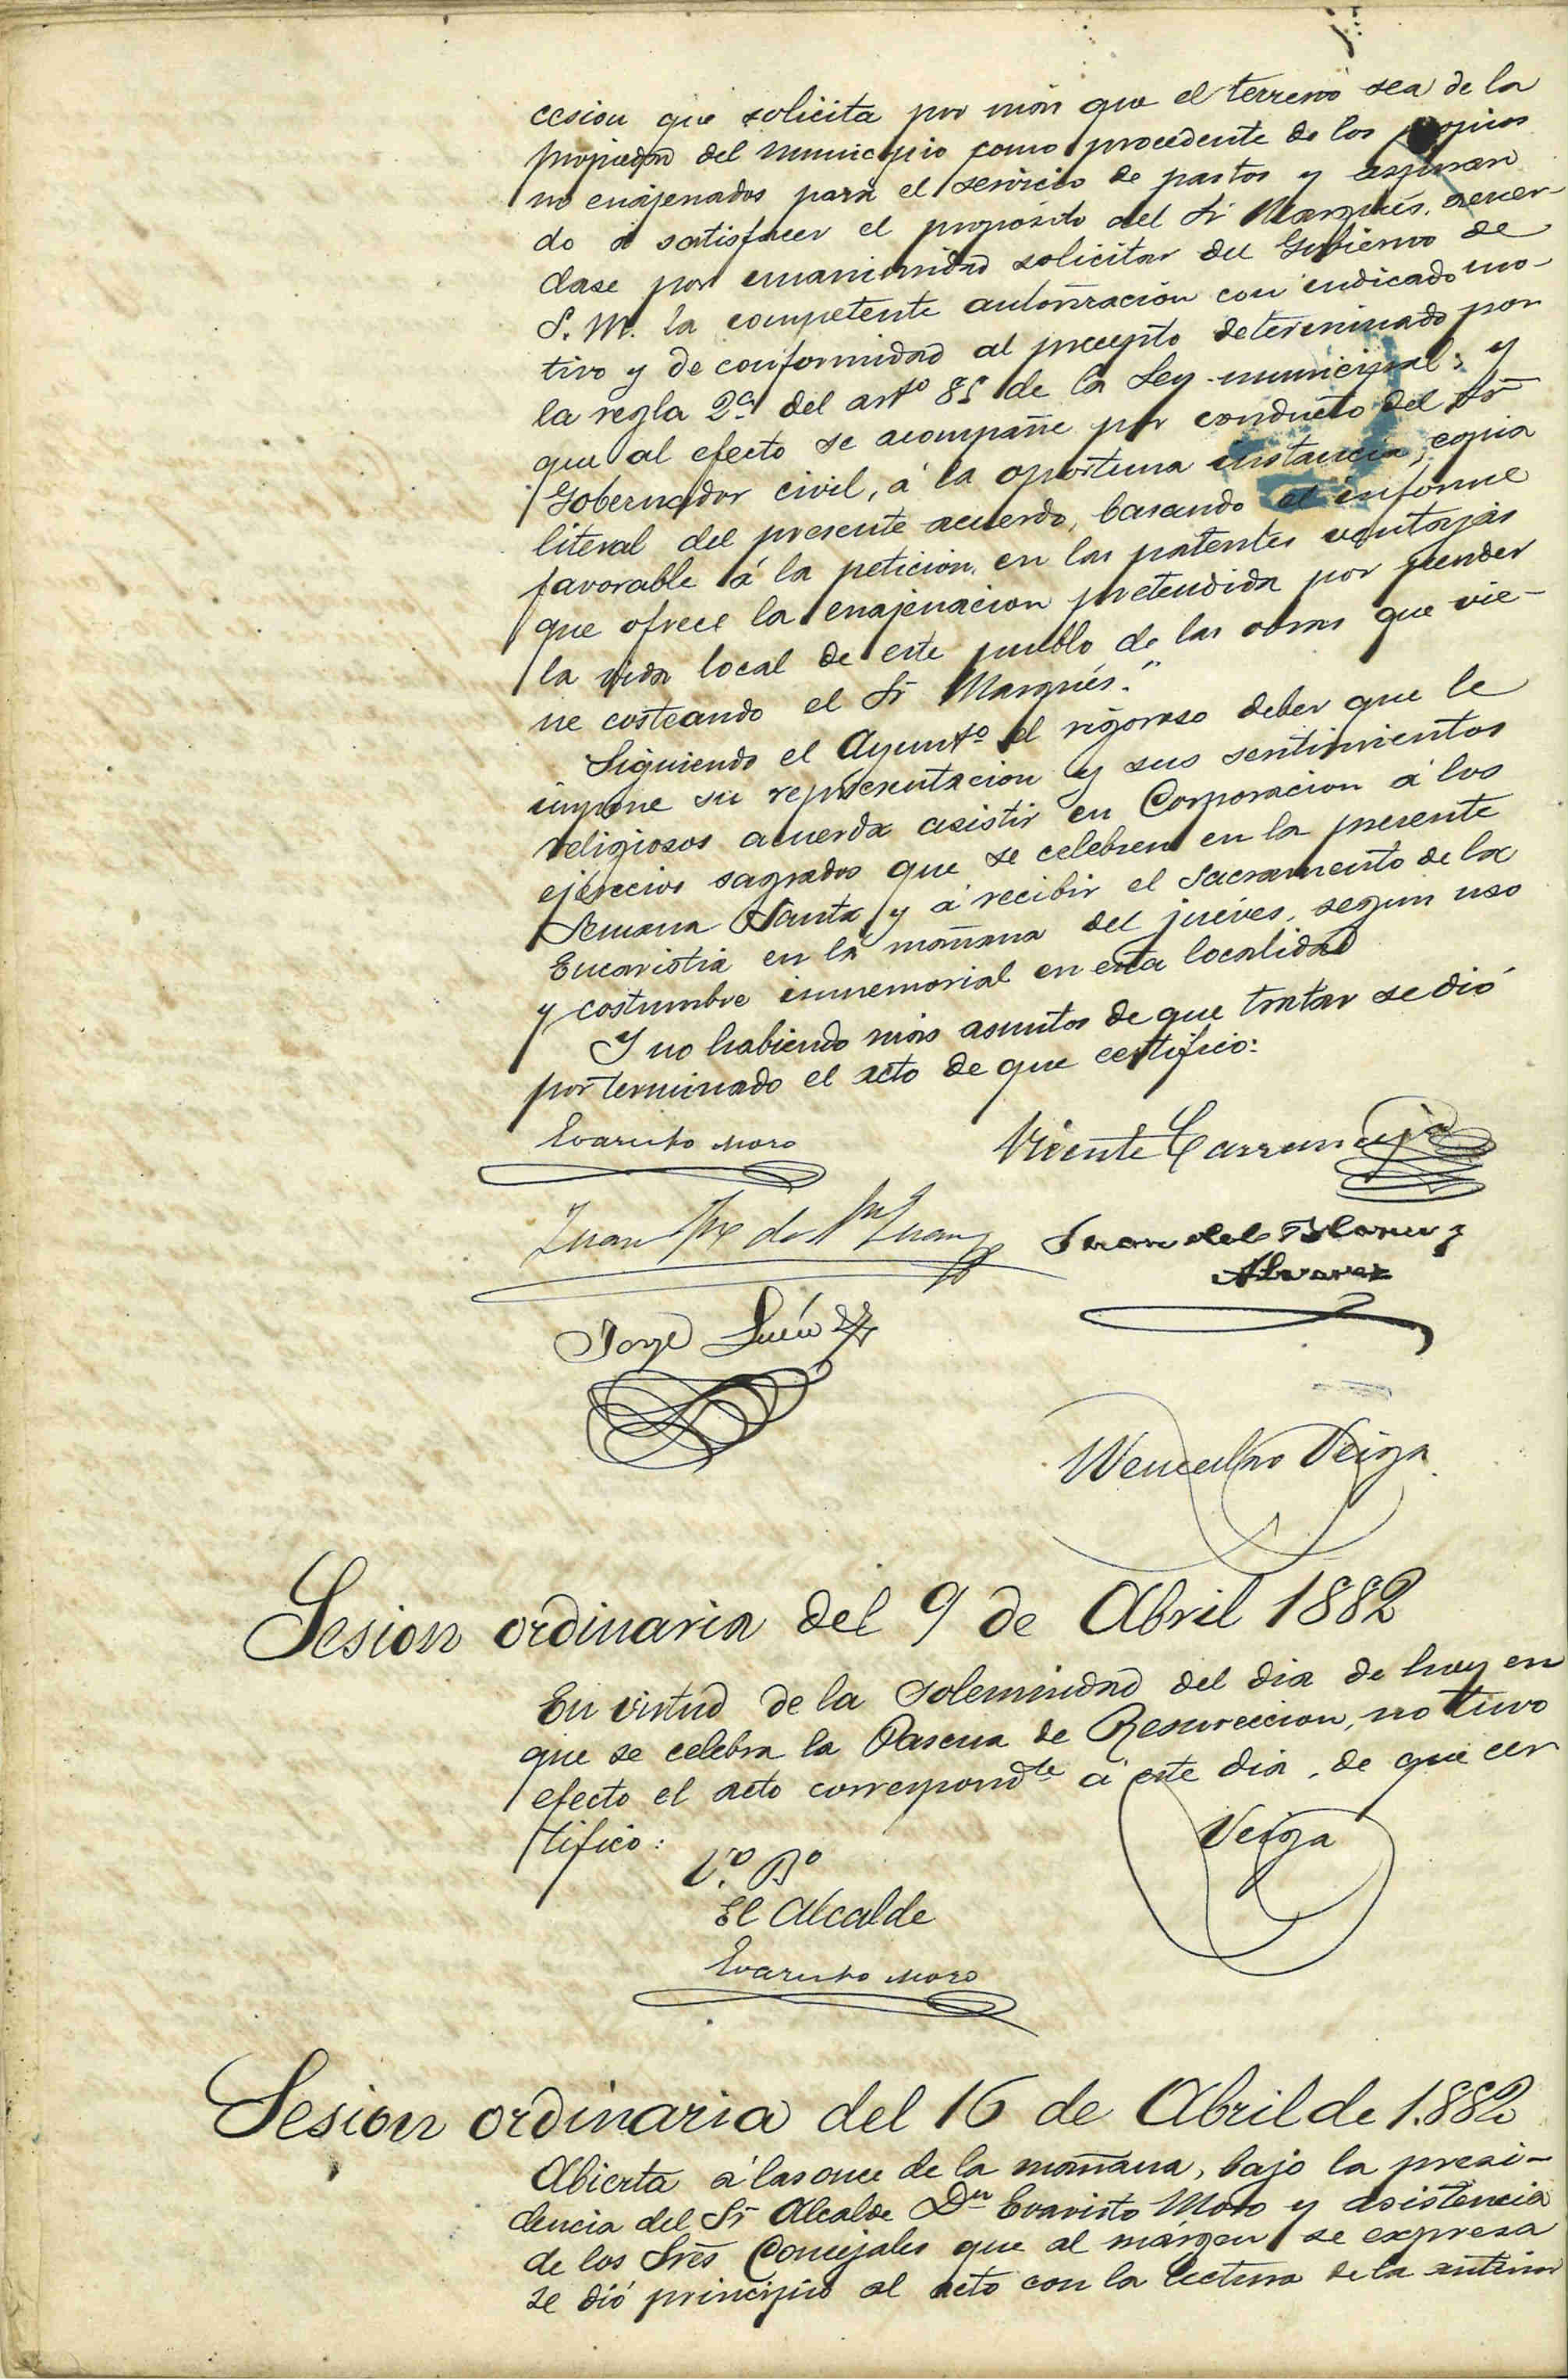 cesion que solicita por más que el terreno sea de la
propiedad del Municipio como procedente de los propios
no enajenados para el servicio de pastos y aspiran
do á satisfacer el propósito del Sr Marqués, acuer
dase por unanimidad solicitar del Gobierno de
S. M. la competente autorizacion con indicado mo-
tivo y de conformidad al precepto determinado por
la regla 2ª del artº 85 de la Ley municipal; y
que al efecto se acompañe por conducto del Sr
Gobernador civil, á la oportuna instancia, copia
literal del presente acuerdo, basando el informe
favorable á la peticion, en las patentes ventajas
que ofrece la enajenacion pretendida por pender
la vida local de este pueblo de las obras que vie-
ne costeando el Sr Marqués."
Siguiendo el Ayuntº el rigoroso deber que le
impone su representacion y sus sentimientos
religiosos acuerda asistir en Corporacion á los
ejercicios sagrados que se celebren en la presente
Semana Santa y á recibir el Sacramento de la
Eucaristia en la mañana del jueves, segun uso
y costumbre inmemorial en esta localidad
Y no habiendo más asuntos de que tratar se dió
por terminado el acto de que certifico:
Evaristo Moro
Vicente Carranceja
Juan de Juan
Juan del Blanco y
Alvarez
Jorge
Wenceslao Veiga
Sesion ordinaria del 9 de Abril 1882
En virtud de la solemnidad del dia de hoy en
que se celebra la Pascua de Resureccion, no tuvo
efecto el acto correspondte á este dia, de que cer
tifico:
Veiga
V.º Bº
El Alcalde
Evaristo Moro
Sesion ordinaria del 16 de Abril de 1.882
Abierta á las once de la mañana, bajo la presi-
dencia del Sr Alcalde Dn Evaristo Moro y asistencia
de los Sres Concejales que al márgen se expresa
se dió principio al acto con la lectura de la anterior